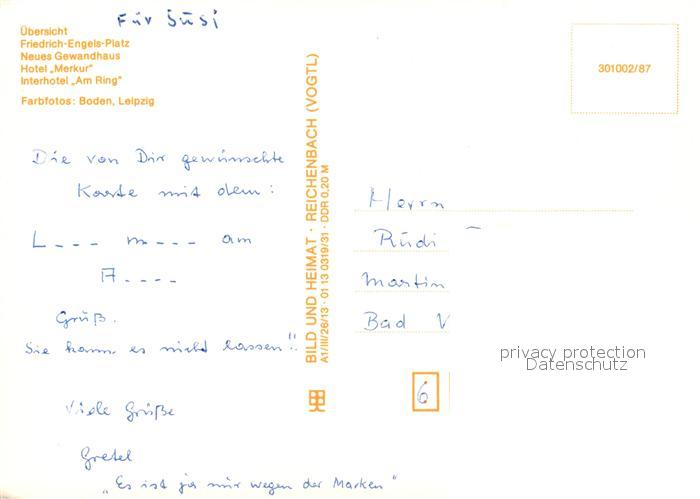 Für Susi
Übersicht
Friedrich-Engels-Platz
Neues Gewandhaus
Hotel „Merkur"
Interhotel „Am Ring"
Farbfotos: Boden, Leipzig
301002/87
Die von Dir gewünschte
Karte mit dem:
L--- m--- am
A----
Gruß.
Sie kann es nicht lassen!!
Viele Grüße
Gretel
„Es ist ja nur wegen der Marken"
BILD UND HEIMAT · REICHENBACH (VOGTL)
A1/III/26/13 · 01 13 0319/31 · DDR 0,20 M
Herrn
Rudi
Martin
Bad V
6
privacy protection
Datenschutz